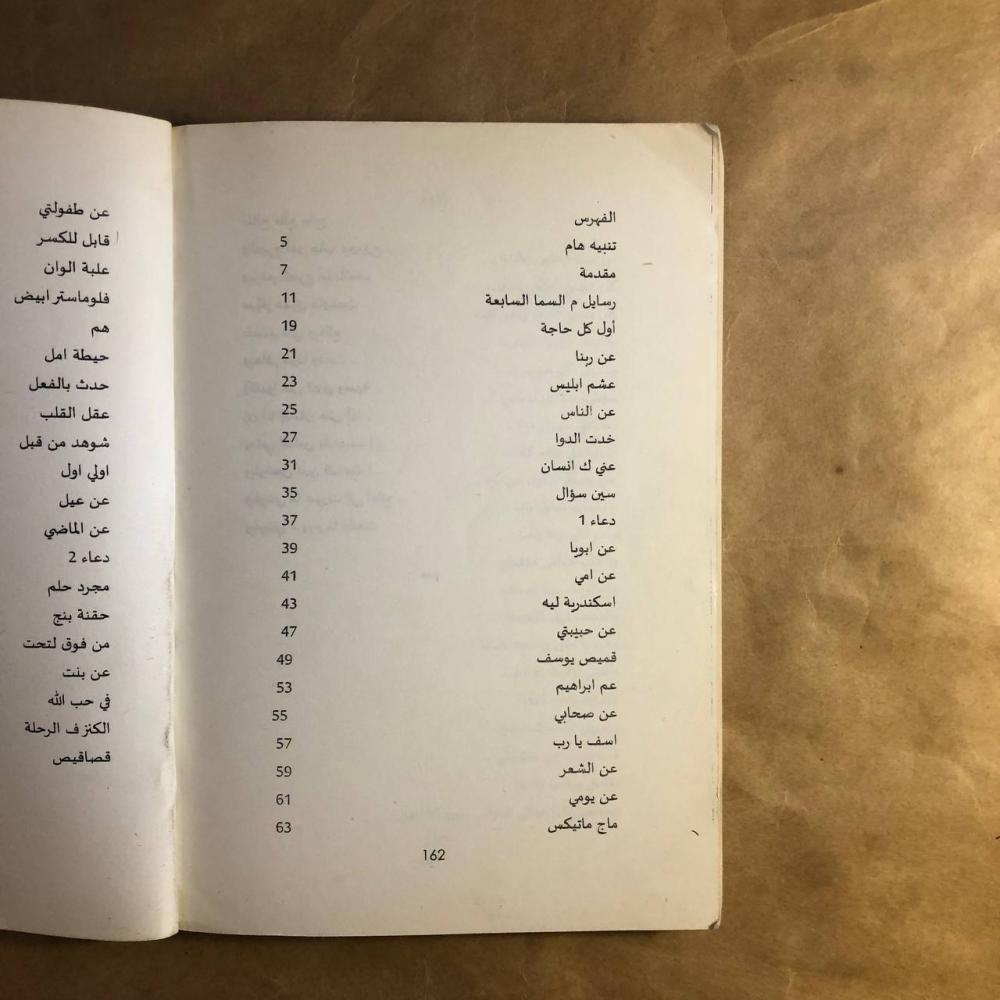 الفهرس
تنبيه هام 5
مقدمة 7
رسايل م السما السابعة 11
أول كل حاجة 19
عن ربنا 21
عشم ابليس 23
عن الناس 25
خدت الدوا 27
عني ك انسان 31
سين سؤال 35
دعاء 1 37
عن ابويا 39
عن امي 41
اسكندرية ليه 43
عن حبيبتي 47
قميص يوسف 49
عم ابراهيم 53
عن صحابي 55
اسف يا رب 57
عن الشعر 59
عن يومي 61
ماج ماتيكس 63
162
عن طفولتي
قابل للكسر
علبة الوان
فلوماستر ابيض
هم
حيطة امل
حدث بالفعل
عقل القلب
شوهد من قبل
اولي اول
عن عيل
عن الماضي
دعاء 2
مجرد حلم
حقنة بنج
من فوق لتحت
عن بنت
في حب الله
الكنز ف الرحلة
قصاقيص